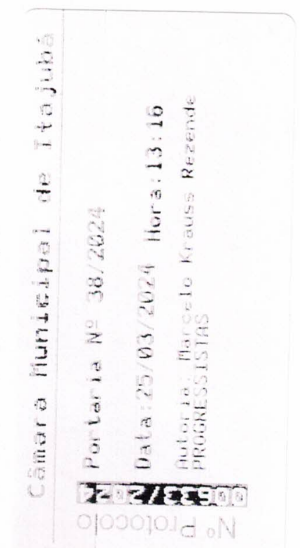 Câmara Municipal de Itajubá
Portaria Nº 38/2024
Data:25/03/2024 Hora:13:16
Autoria: Marcelo Krauss Rezende
PROGRESSISTAS
Nº Protocolo
00633/2024